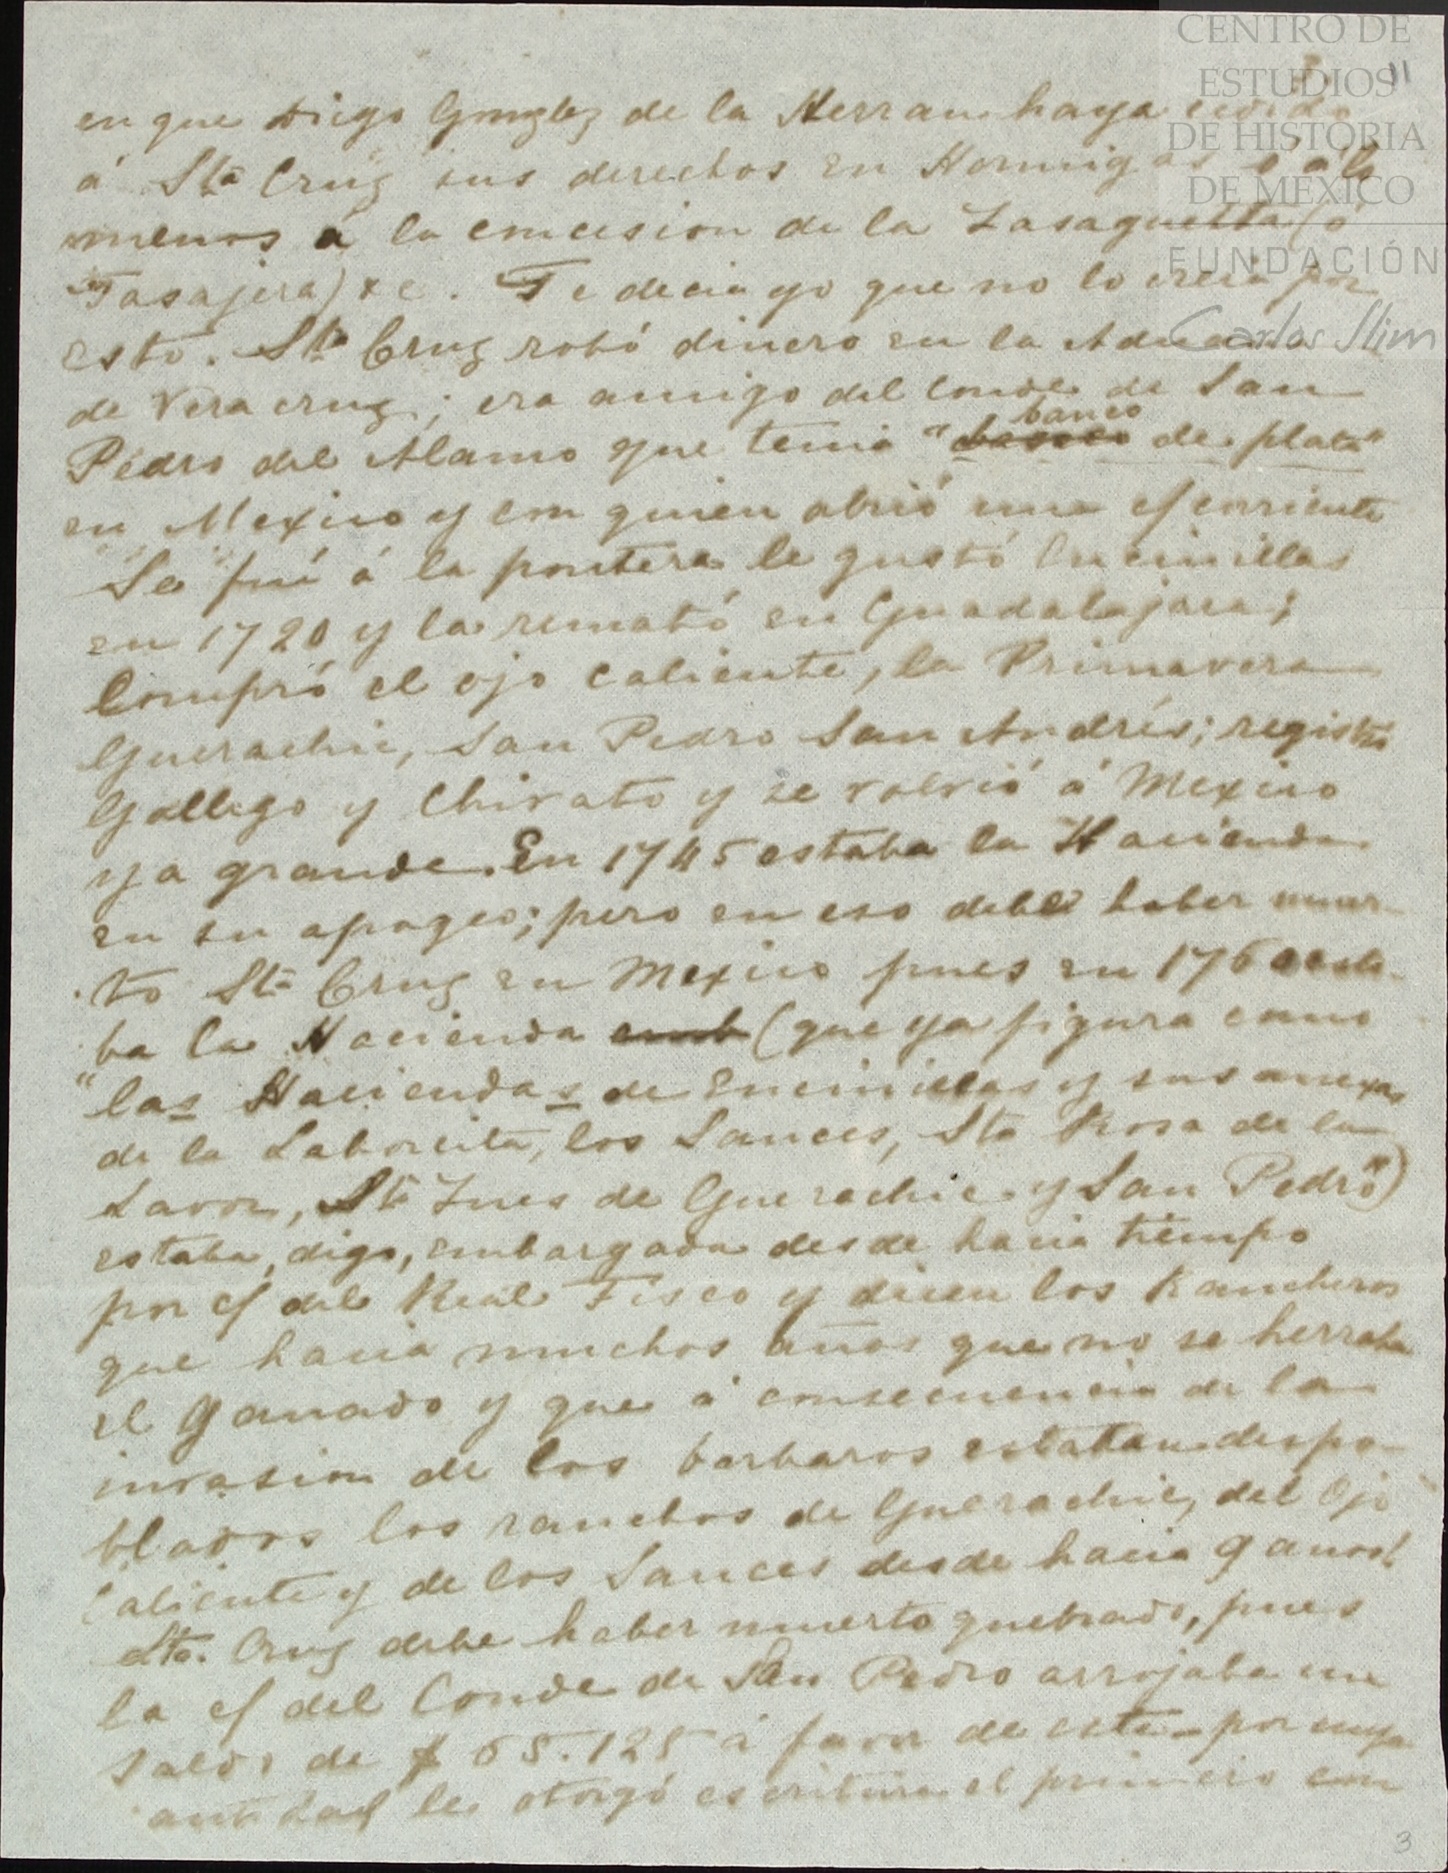 CENTRO DE
ESTUDIOS
DE HISTORIA
DE MEXICO
FUNDACIÓN
Carlos Slim
11
en que Diego Gonzlez de la Herran haya cedido
á Sta Cruz sus derechos en Hormigas ó á lo
menos á la concesion de la Zasaguetta (ó
Tasajera) &c. Te decia yo que no lo creia por
esto. Sta Cruz robó dinero en la Aduana
de Vera cruz; era amigo del Conde de San
Pedro del Alamo que tenia "banco de plata"
en Mexico y con quien abrió una c/ corriente
Se fué á la frontera le gustó Encinillas
en 1720 y la remató en Guadalajara;
Compró el ojo caliente, la Primavera
Guerachic, San Pedro San Andrés; registró
Gallego y Chivato y se volvió á Mexico
ya grande. En 1745 estaba la Hacienda
en su apogeo; pero en eso debe haber muer-
to Sta Cruz en Mexico pues en 1760 esta-
ba la Hacienda (que ya figura como
"las Haciendas de Encinillas y sus anexas
de la Laborcita, los Sauces, Sta Rosa de la
Lavor, Sta Ines de Guerachic y San Pedro")
estaba, digo, embargada desde hacia tiempo
por c/ del Real Fisco y dicen los Rancheros
que hacia muchos años que no se herraba
el ganado y que á consecuencia de la
invasion de los barbaros estaban despo-
blados los ranchos de Guerachic, del Ojo
Caliente y de los Sauces desde hacia 9 anos!
Sta. Cruz debe haber muerto quebrado, pues
la c/ del Conde de San Pedro arrojaba un
saldo de $ 65.125 á favor de este por cuya
antidad le otorgó escritura el primero con
3